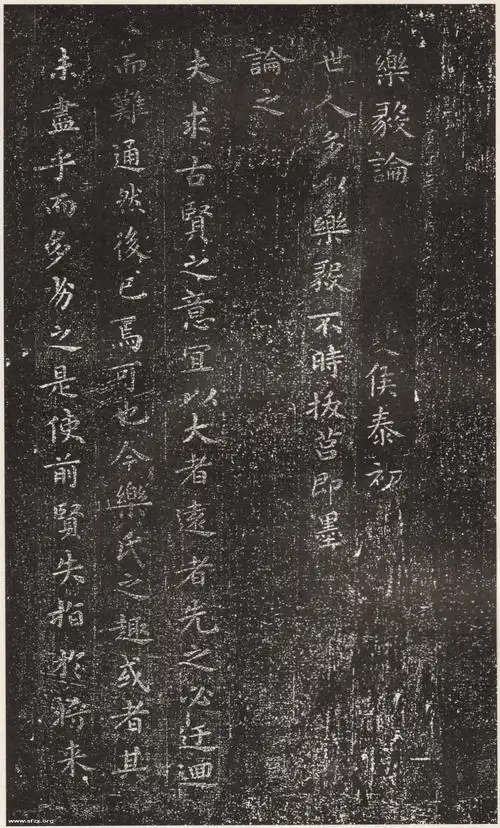 樂毅論
侯泰初
世人多以樂毅不時拔莒即墨
論之
夫求古賢之意宜以大者遠者先之必迂迴
而難通然後已焉可也今樂氏之趣或者其
未盡乎而多劣之是使前賢失指於將来
www.sfzx.org